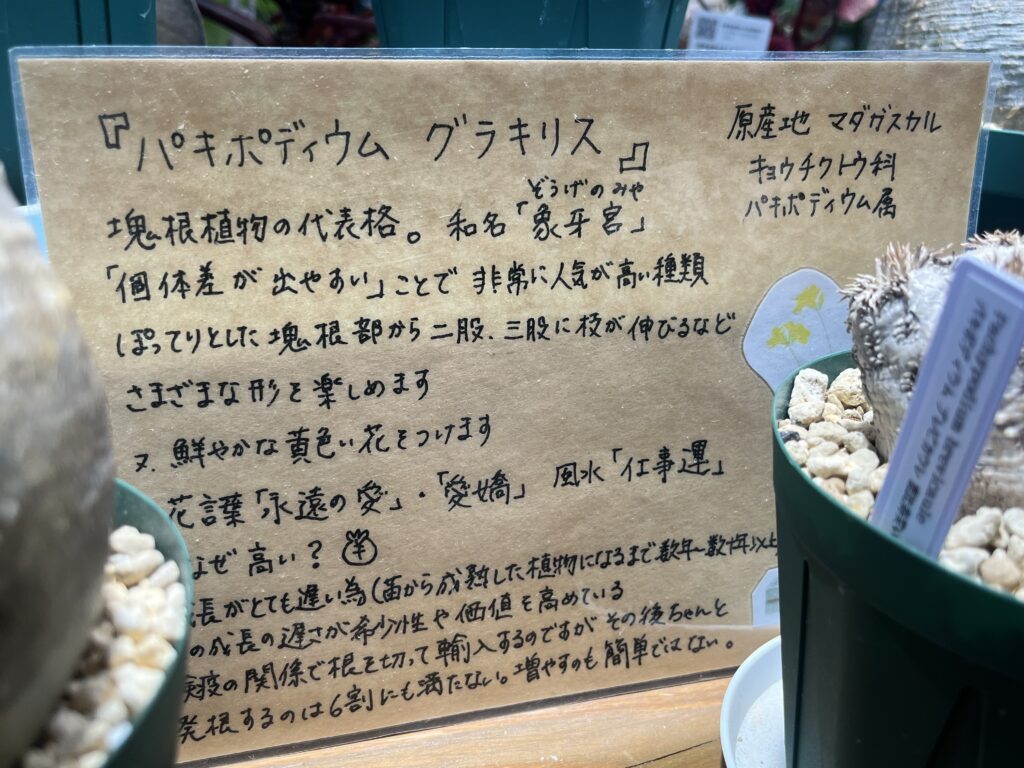 『パキポディウム グラキリス』
原産地 マダガスカル
キョウチクトウ科
パキポディウム属
ぞうげのみや
塊根植物の代表格。和名「象牙宮」
「個体差が出やすい」ことで非常に人気が高い種類
ぽってりとした塊根部から二股、三股に枝が伸びるなど
さまざまな形を楽しめます
又、鮮やかな黄色い花をつけます
花言葉「永遠の愛」・「愛嬌」 風水「仕事運」
なぜ高い?
長がとても遅い為(苗から成熟した植物になるまで数年〜数十年以上
の成長の遅さが希少性や価値を高めている
疫の関係で根を切って輸入するのですがその後ちゃんと
発根するのは6割にも満たない。増やすのも簡単ではない。
Pachypodium brevicaule
パキポディウム